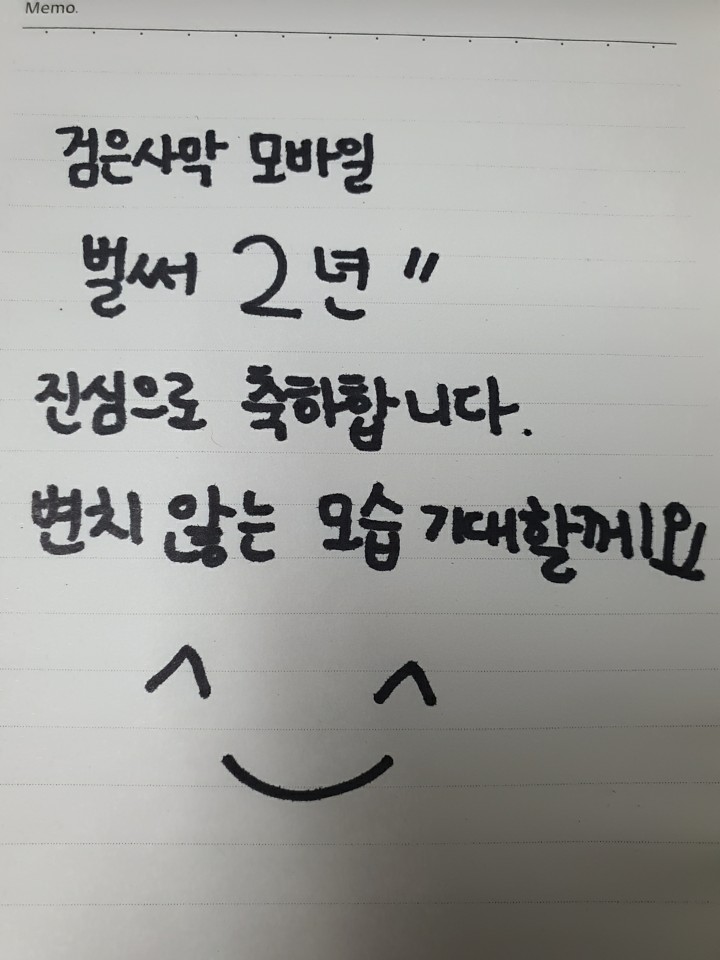 Memo.
검은사막 모바일
벌써 2년 〃
진심으로 축하합니다.
변치 않는 모습 기대할께요